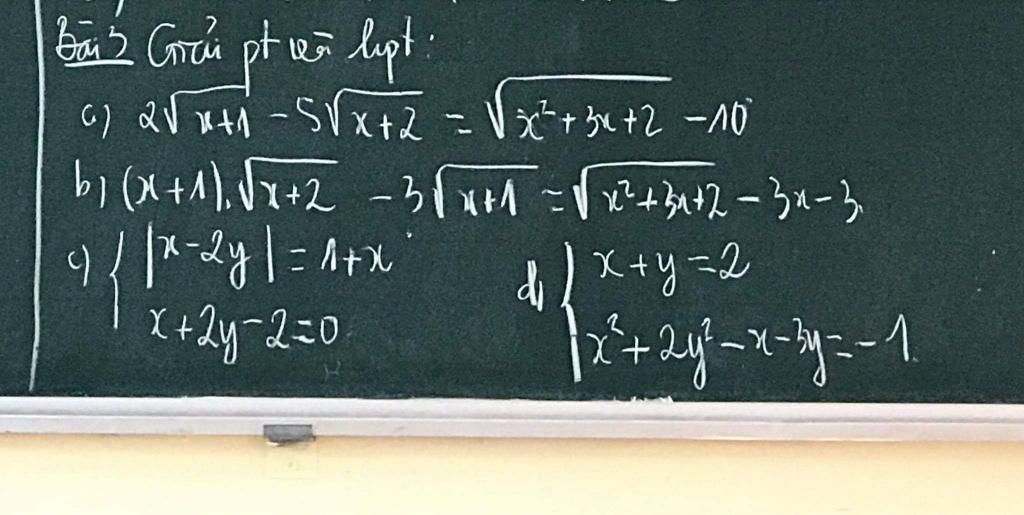 Bài 3 Giải pt và hpt:
a) 2√(x+1) - 5√(x+2) = √(x²+3x+2) - 10
b) (x+1).√(x+2) - 3√(x+1) = √(x²+3x+2) - 3x - 3.
c) { |x-2y| = 1+x
x+2y-2=0
d) { x+y=2
x²+2y²-x-3y=-1.